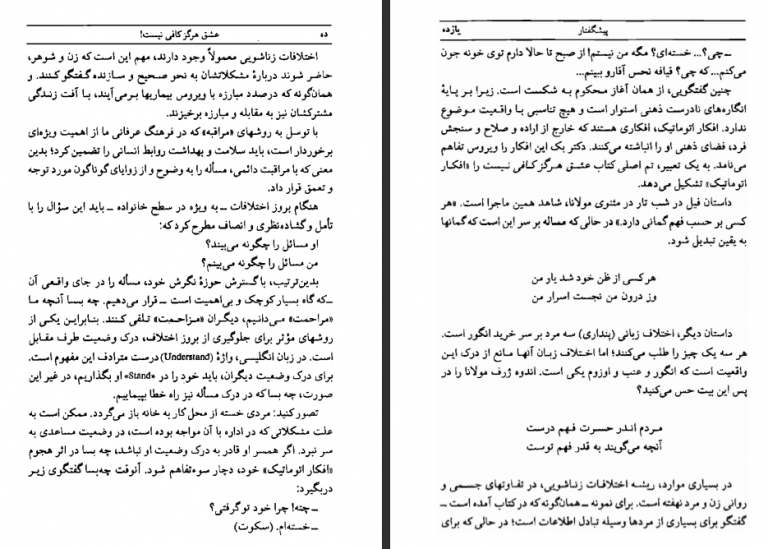 ده
عشق هرگز کافی نیست!
اختلافات زناشویی معمولاً وجود دارند، مهم این است که زن و شوهر،
حاضر شوند دربارهٔ مشکلاتشان به نحو صحیح و سازنده گفتگو کنند. و
همان‌گونه که درصدد مبارزه با ویروس بیماریها برمی‌آیند، با آفت زندگی
مشترکشان نیز به مقابله و مبارزه برخیزند.
با توسل به روشهای «مراقبه» که در فرهنگ عرفانی ما از اهمیت ویژه‌ای
برخوردار است، باید سلامت و بهداشت روابط انسانی را تضمین کرد؛ بدین
معنی که با مراقبت دائمی، مسأله را به وضوح و از زوایای گوناگون مورد توجه
و تعمق قرار داد.
هنگام بروز اختلافات ــ به ویژه در سطح خانواده ــ باید این سؤال را با
تأمل و گشاده‌نظری و انصاف مطرح کرد که:
او مسائل را چگونه می‌بیند؟
من مسائل را چگونه می‌بینم؟
بدین‌ترتیب، با گسترش حوزهٔ نگرش خود، مسأله را در جای واقعی آن
ــ که گاه بسیار کوچک و بی‌اهمیت است ــ قرار می‌دهیم. چه بسا آنچه ما
«مراحمت» می‌دانیم، دیگران «مزاحمت» تلقی کنند. بنابراین یکی از
روشهای مؤثر برای جلوگیری از بروز اختلاف، درک وضعیت طرف مقابل
است. در زبان انگلیسی، واژهٔ (Understand) درست مترادف این مفهوم است.
برای درک وضعیت دیگران، باید خود را در «Stand» او بگذاریم، در غیر این
صورت، چه بسا که در درک مسأله نیز راه خطا بپیماییم.
تصور کنید: مردی خسته از محل کار به خانه باز می‌گردد. ممکن است به
علت مشکلاتی که در اداره با آن مواجه بوده است، در وضعیت مساعدی به
سر نبرد. اگر همسر او قادر به درک وضعیت او نباشد، چه بسا در اثر هجوم
«افکار اتوماتیک» خود، دچار سوءتفاهم شود. آنوقت چه‌بسا گفتگوی زیر
دربگیرد:
ــ چته! چرا خود تو گرفتی؟
ــ خسته‌ام. (سکوت)
پیشگفتار
یازده
ــ چی؟... خسته‌ای؟ مگه من نیستم! از صبح تا حالا دارم توی خونه جون
می‌کنم... که چی؟ قیافه نحس آقارو ببینم...
چنین گفتگویی، از همان آغاز محکوم به شکست است. زیرا بر پایهٔ
انگاره‌های نادرست ذهنی استوار است و هیچ تناسبی با واقعیت موضوع
ندارد. افکار اتوماتیک، افکاری هستند که خارج از اراده و صلاح و سنجش
فرد، فضای ذهنی او را انباشته می‌کنند. دکتر بک این افکار را ویروس تفاهم
می‌نامد. به یک تعبیر، تم اصلی کتاب عشق هرگز کافی نیست را «افکار
اتوماتیک» تشکیل می‌دهد.
داستان فیل در شب تار در مثنوی مولانا، شاهد همین ماجرا است. «هر
کسی بر حسب فهم گمانی دارد.» در حالی که مساله بر سر این است که گمانها
به یقین تبدیل شود.
هر کسی از ظن خود شد یار من
وز درون من نجست اسرار من
داستان دیگر، اختلاف زبانی (پنداری) سه مرد بر سر خرید انگور است.
هر سه یک چیز را طلب می‌کنند؛ اما اختلاف زبان آنها مانع از درک این
واقعیت است که انگور و عنب و اوزوم یکی است. اندوه ژرف مولانا را در
پس این بیت حس می‌کنید؟
مردم اندر حسرت فهم درست
آنچه می‌گویند به قدر فهم توست
در بسیاری موارد، ریشه اختلافات زناشویی، در تفاوتهای جسمی و
روانی زن و مرد نهفته است. برای نمونه ــ همان‌گونه که در کتاب آمده است ــ
گفتگو برای بسیاری از مردها وسیله تبادل اطلاعات است؛ در حالی که برای